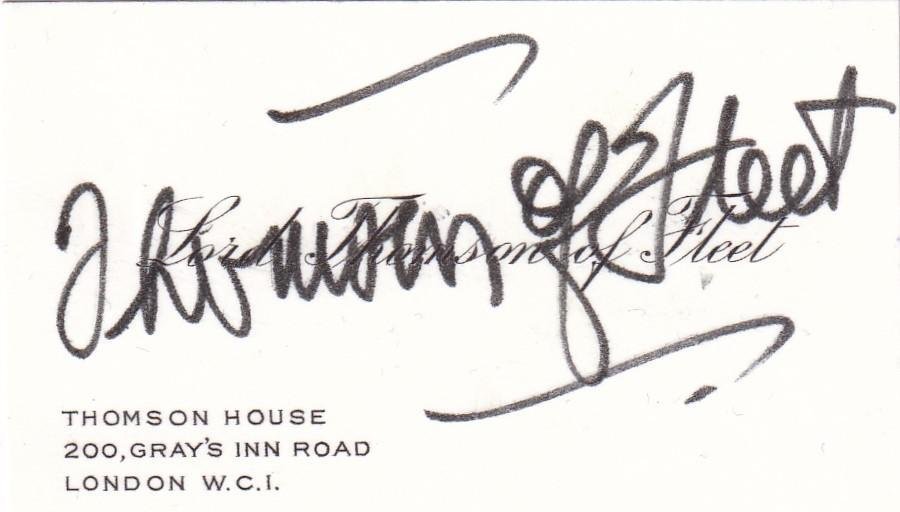 Thomson of Fleet
Lord Thomson of Fleet
THOMSON HOUSE
200, GRAY'S INN ROAD
LONDON W.C.I.